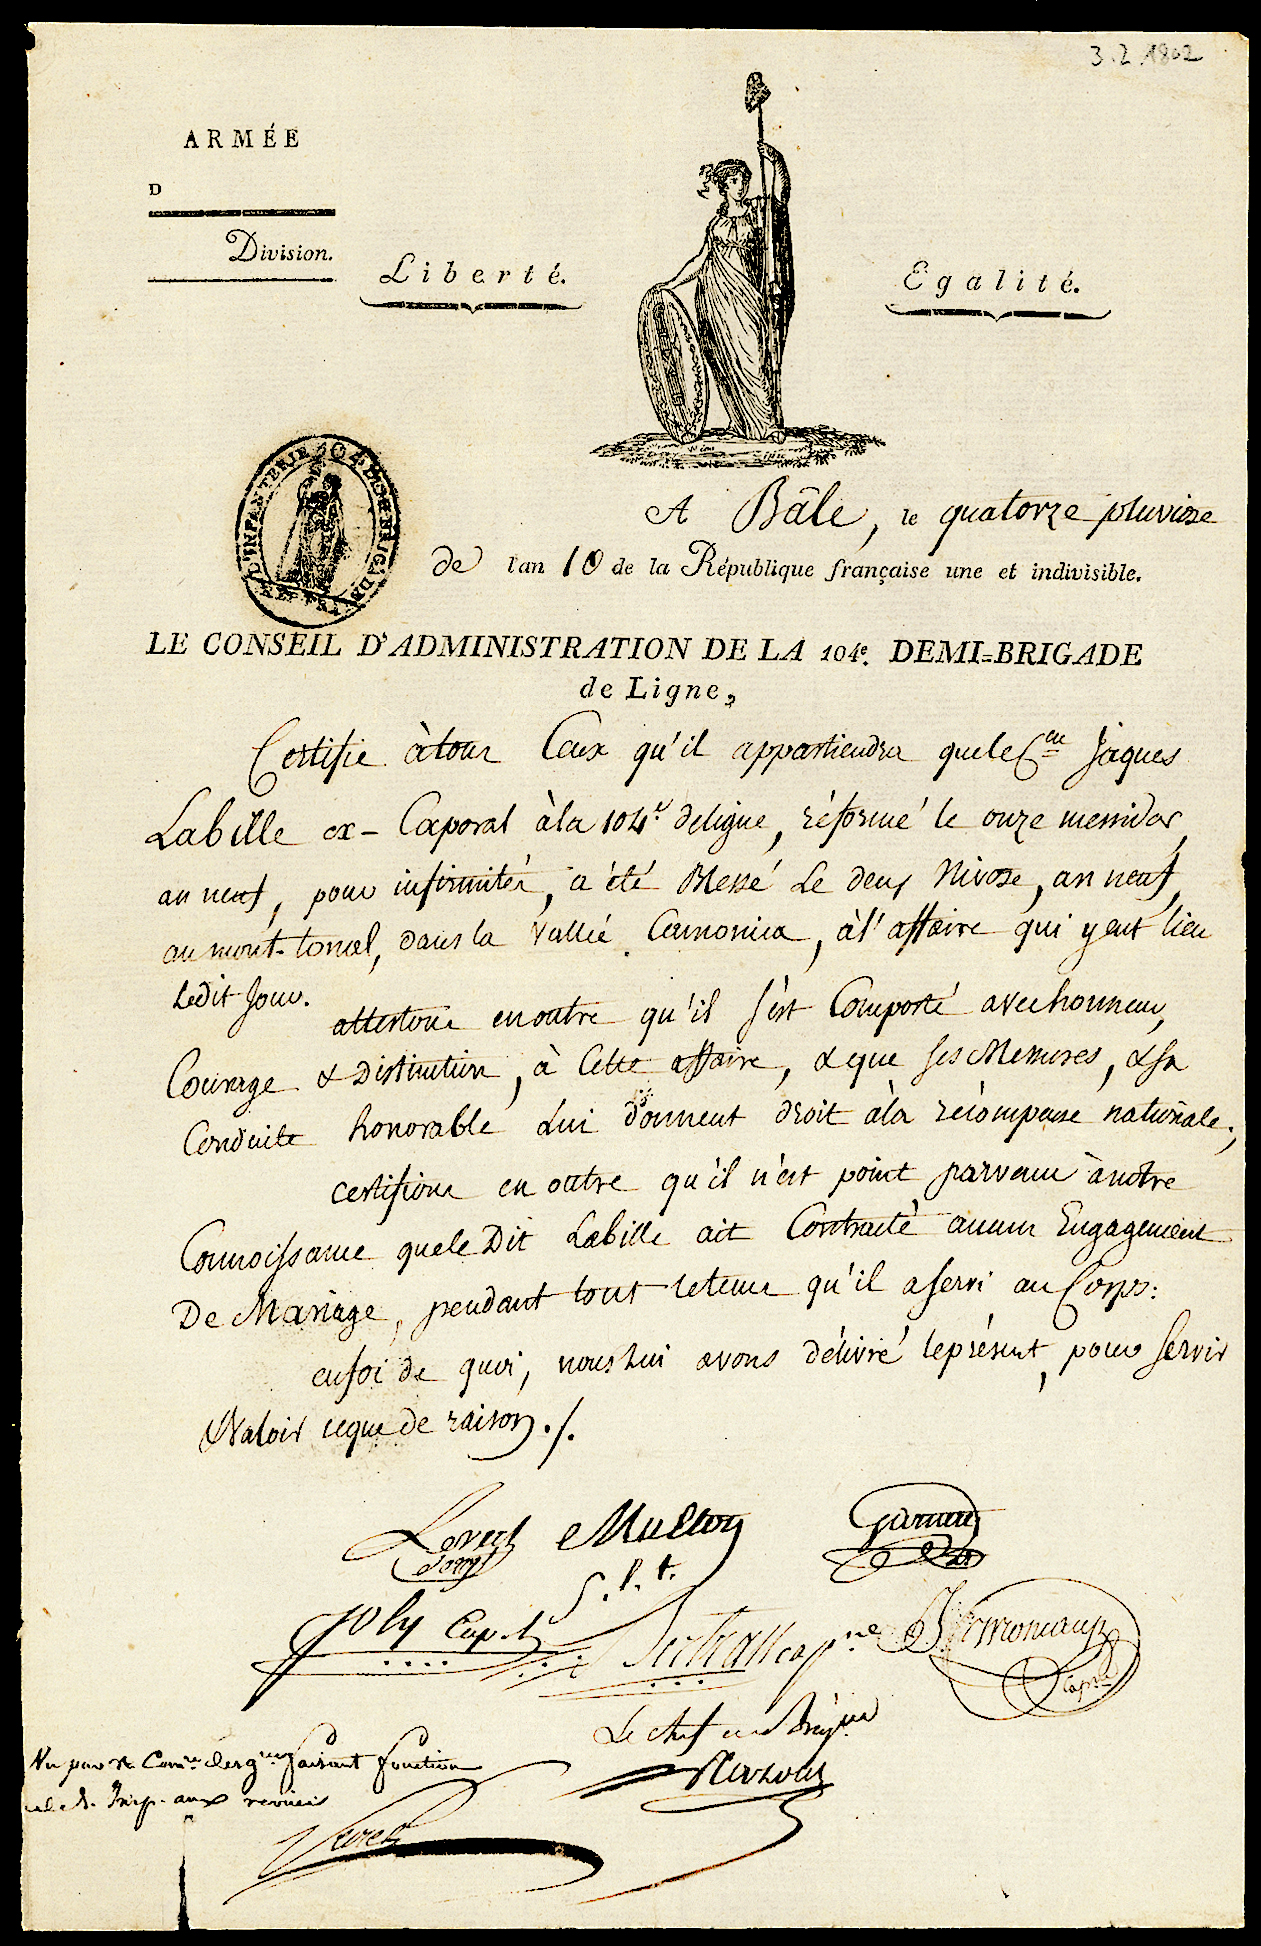 3.2.1802
ARMÉE
D
Division.
Liberté.
Egalité.
D'INFANTERIE 104 DEMI BRIGADE
A Bâle, le quatorze pluviose
de l'an 10 de la République française une et indivisible.
LE CONSEIL D'ADMINISTRATION DE LA 104e. DEMI-BRIGADE
de Ligne,
Certifie à tous Ceux qu'il appartiendra que le Cen Jaques
Labille ex-Caporal à la 104e de ligne, réformé le onze messidor
an neuf, pour infirmités, a été Blessé Le deux Nivose, an neuf,
au mont-tonal, dans la Vallée Camonica, à l'affaire qui y eut lieu
Ledit Jour.
attestons en outre qu'il s'est Comporté avec honneur,
Courage & Distinction, à Cette affaire, & que ses Blessures, & sa
Conduite honorable Lui donnent droit à la récompense nationale;
certifions en outre qu'il n'est point parvenu à notre
Connoissance que le Dit Labille ait Contracté aucun Engagement
De Mariage, pendant tout le tems qu'il a servi au Corps:
en foi de quoi, nous lui avons délivré le présent, pour servir
& Valoir ce que de raison ./.
Mullon
S. l. t.
Joly Cap.
cap.ne
Cap.ne
Le chef de Brig.de
Vu par le Com.re des g.res faisant fonction
de S. Insp. aux revues